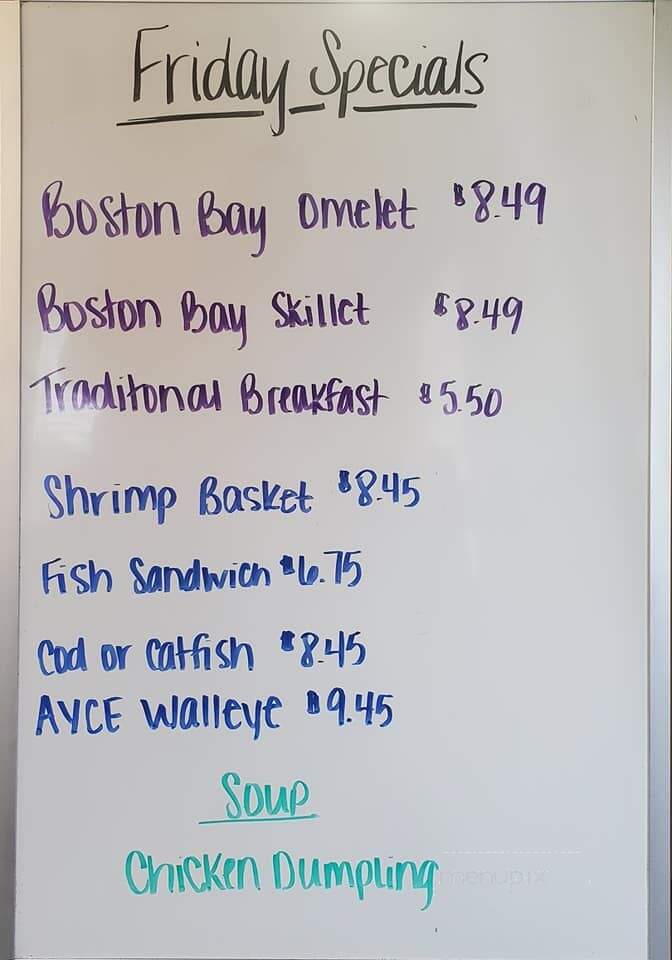 Friday Specials
Boston Bay Omelet $8.49
Boston Bay Skillet $8.49
Traditonal Breakfast $5.50
Shrimp Basket $8.45
Fish Sandwich $6.75
Cod or Catfish $8.45
AYCE Walleye $9.45
Soup
Chicken Dumpling
menupix